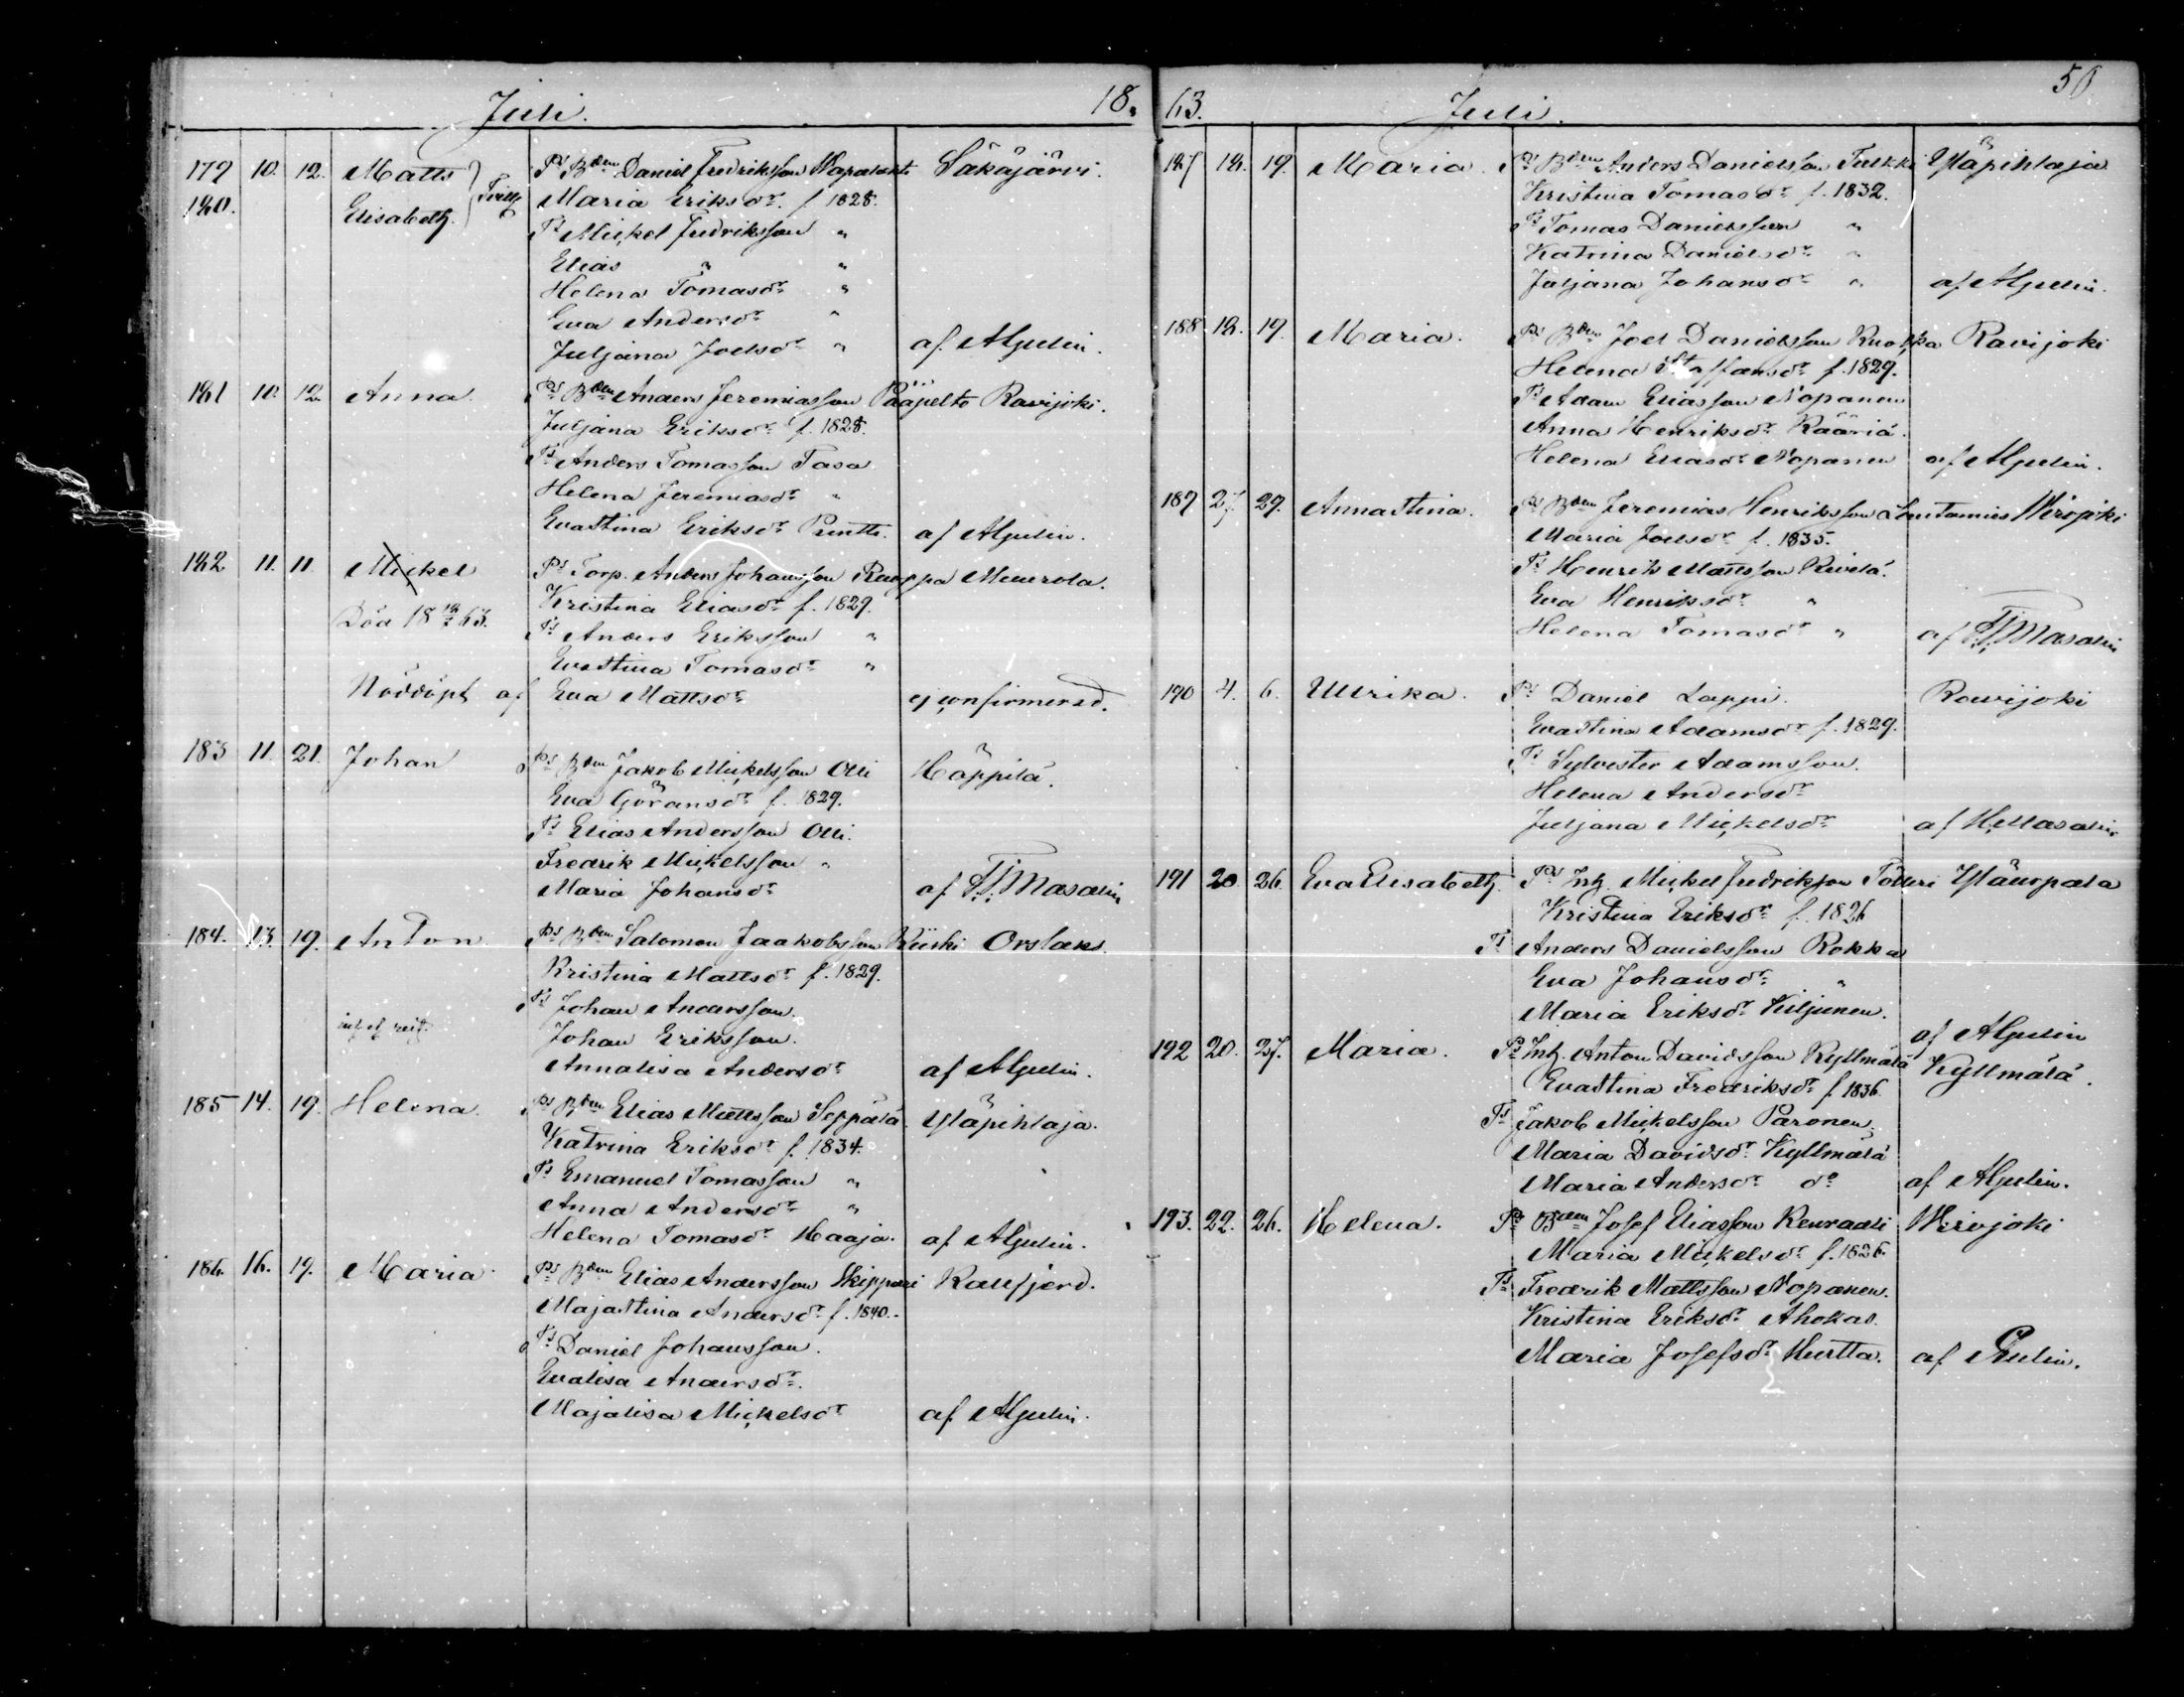 Juli. 18.
179 10. 12. Matts } Tvill. Ps Bden Daniel Fredriksson Napalahti Säkäjärvi.
180. Elisabeth Maria Eriksdr f. 1828.
Ts Mickel Fredriksson "
Elias " "
Helena Tomasdr "
Eva Andersdr "
Juljana Joelsdr " af Aljulin.
181 10. 12. Anna Ps Bden Anders Jeremiasson Pääpelto Ravijoki.
Juljana Eriksdr f. 1828.
Ts Anders Tomasson Tasa
Helena Jeremiasdr "
Evastina Eriksdr Puntti. af Aljulin.
182 11. 11. Mickel Ps Torp. Anders Johansson Ruoppa Meurola.
Död 18 63. Kristina Eliasdr f. 1829.
Ts Anders Eriksson "
Evastina Tomasdr "
Nöddöpt af Eva Mattsdr ej confirmerad.
183 11. 21. Johan Ps Bden Jakob Mickelsson Olli Häppilä.
Eva Göransdr f. 1829.
Ts Elias Andersson Olli.
Fredrik Mickelsson "
Maria Johansdr af F.J. Masalin
184. 13. 19. Anton Ps Bden Salomon Jaakobsson Kiiski Orslaks.
Kristina Mattsdr f. 1829.
Ts Johan Andersson.
Johan Eriksson.
Annalisa Andersdr af Aljulin.
185 14. 19. Helena. Ps Bden Elias Mattsson Seppälä. Yläpihlaja.
Katrina Eriksdr f. 1834.
Ts Emanuel Tomasson "
Anna Andersdr "
Helena Tomasdr Haaja. af Aljulin.
186. 16. 19. Maria Ps Bden Elias Andersson Skippari Kallfjerd.
Majastina Andersdr f. 1840.
Ts Daniel Johansson.
Evalisa Andersdr.
Majalisa Mickelsdr af Aljulin.
63. Juli. 50
187 18. 19. Maria. Ps Bden Anders Danielsson Tulkki Yläpihlaja
Kristina Tomasdr f. 1832.
Ts Tomas Danielsson "
Katrina Danielsdr "
Juljana Johansdr " af Aljulin.
188 18. 19. Maria. Ps Bden Joel Danielsson Ruokka Ravijoki
Helena Staffansdr f. 1829.
Ts Adam Eliasson Nopanen
Anna Henriksdr Kääriä.
Helena Eliasdr Nopanen af Aljulin.
189 27. 29. Annastina. Ps Bden Jeremias Henriksson Lautamies Wirojoki
Maria Joelsdr f. 1835.
Ts Henrik Mattsson Kivelä.
Eva Henriksdr "
Helena Tomasdr " af F.J. Masalin
190 4. 6. Ullrika. Ps Daniel Lappi. Ravijoki
Evastina Adamsdr f. 1829.
Ts Sylvester Adamsson.
Helena Andersdr
Juljana Mickelsdr af H. Masalin
191 20. 26. Eva Elisabeth. Ps Inh. Mickel Fredriksson Tölleri Yläurpala
Kristina Eriksdr f. 1826
Ts Anders Danielsson Rokka
Eva Johansdr "
Maria Eriksdr Kiljunen. af Aljulin
192 20. 27. Maria. Ps Inh. Anton Davidsson Kyllmälä Kyllmälä.
Evastina Fredriksdr f. 1836.
Ts Jakob Mickelsson Paronen.
Maria Davidsdr Kyllmälä
Maria Andersdr do af Aljulin.
193. 22. 26. Helena. Ps Bden Josef Eliasson Kenraali Wirojoki
Maria Mickelsdr f. 1826.
Ts Fredrik Mattsson Nopanen.
Kristina Eriksdr Ahokas.
Maria Josefsdr Hurtta. af